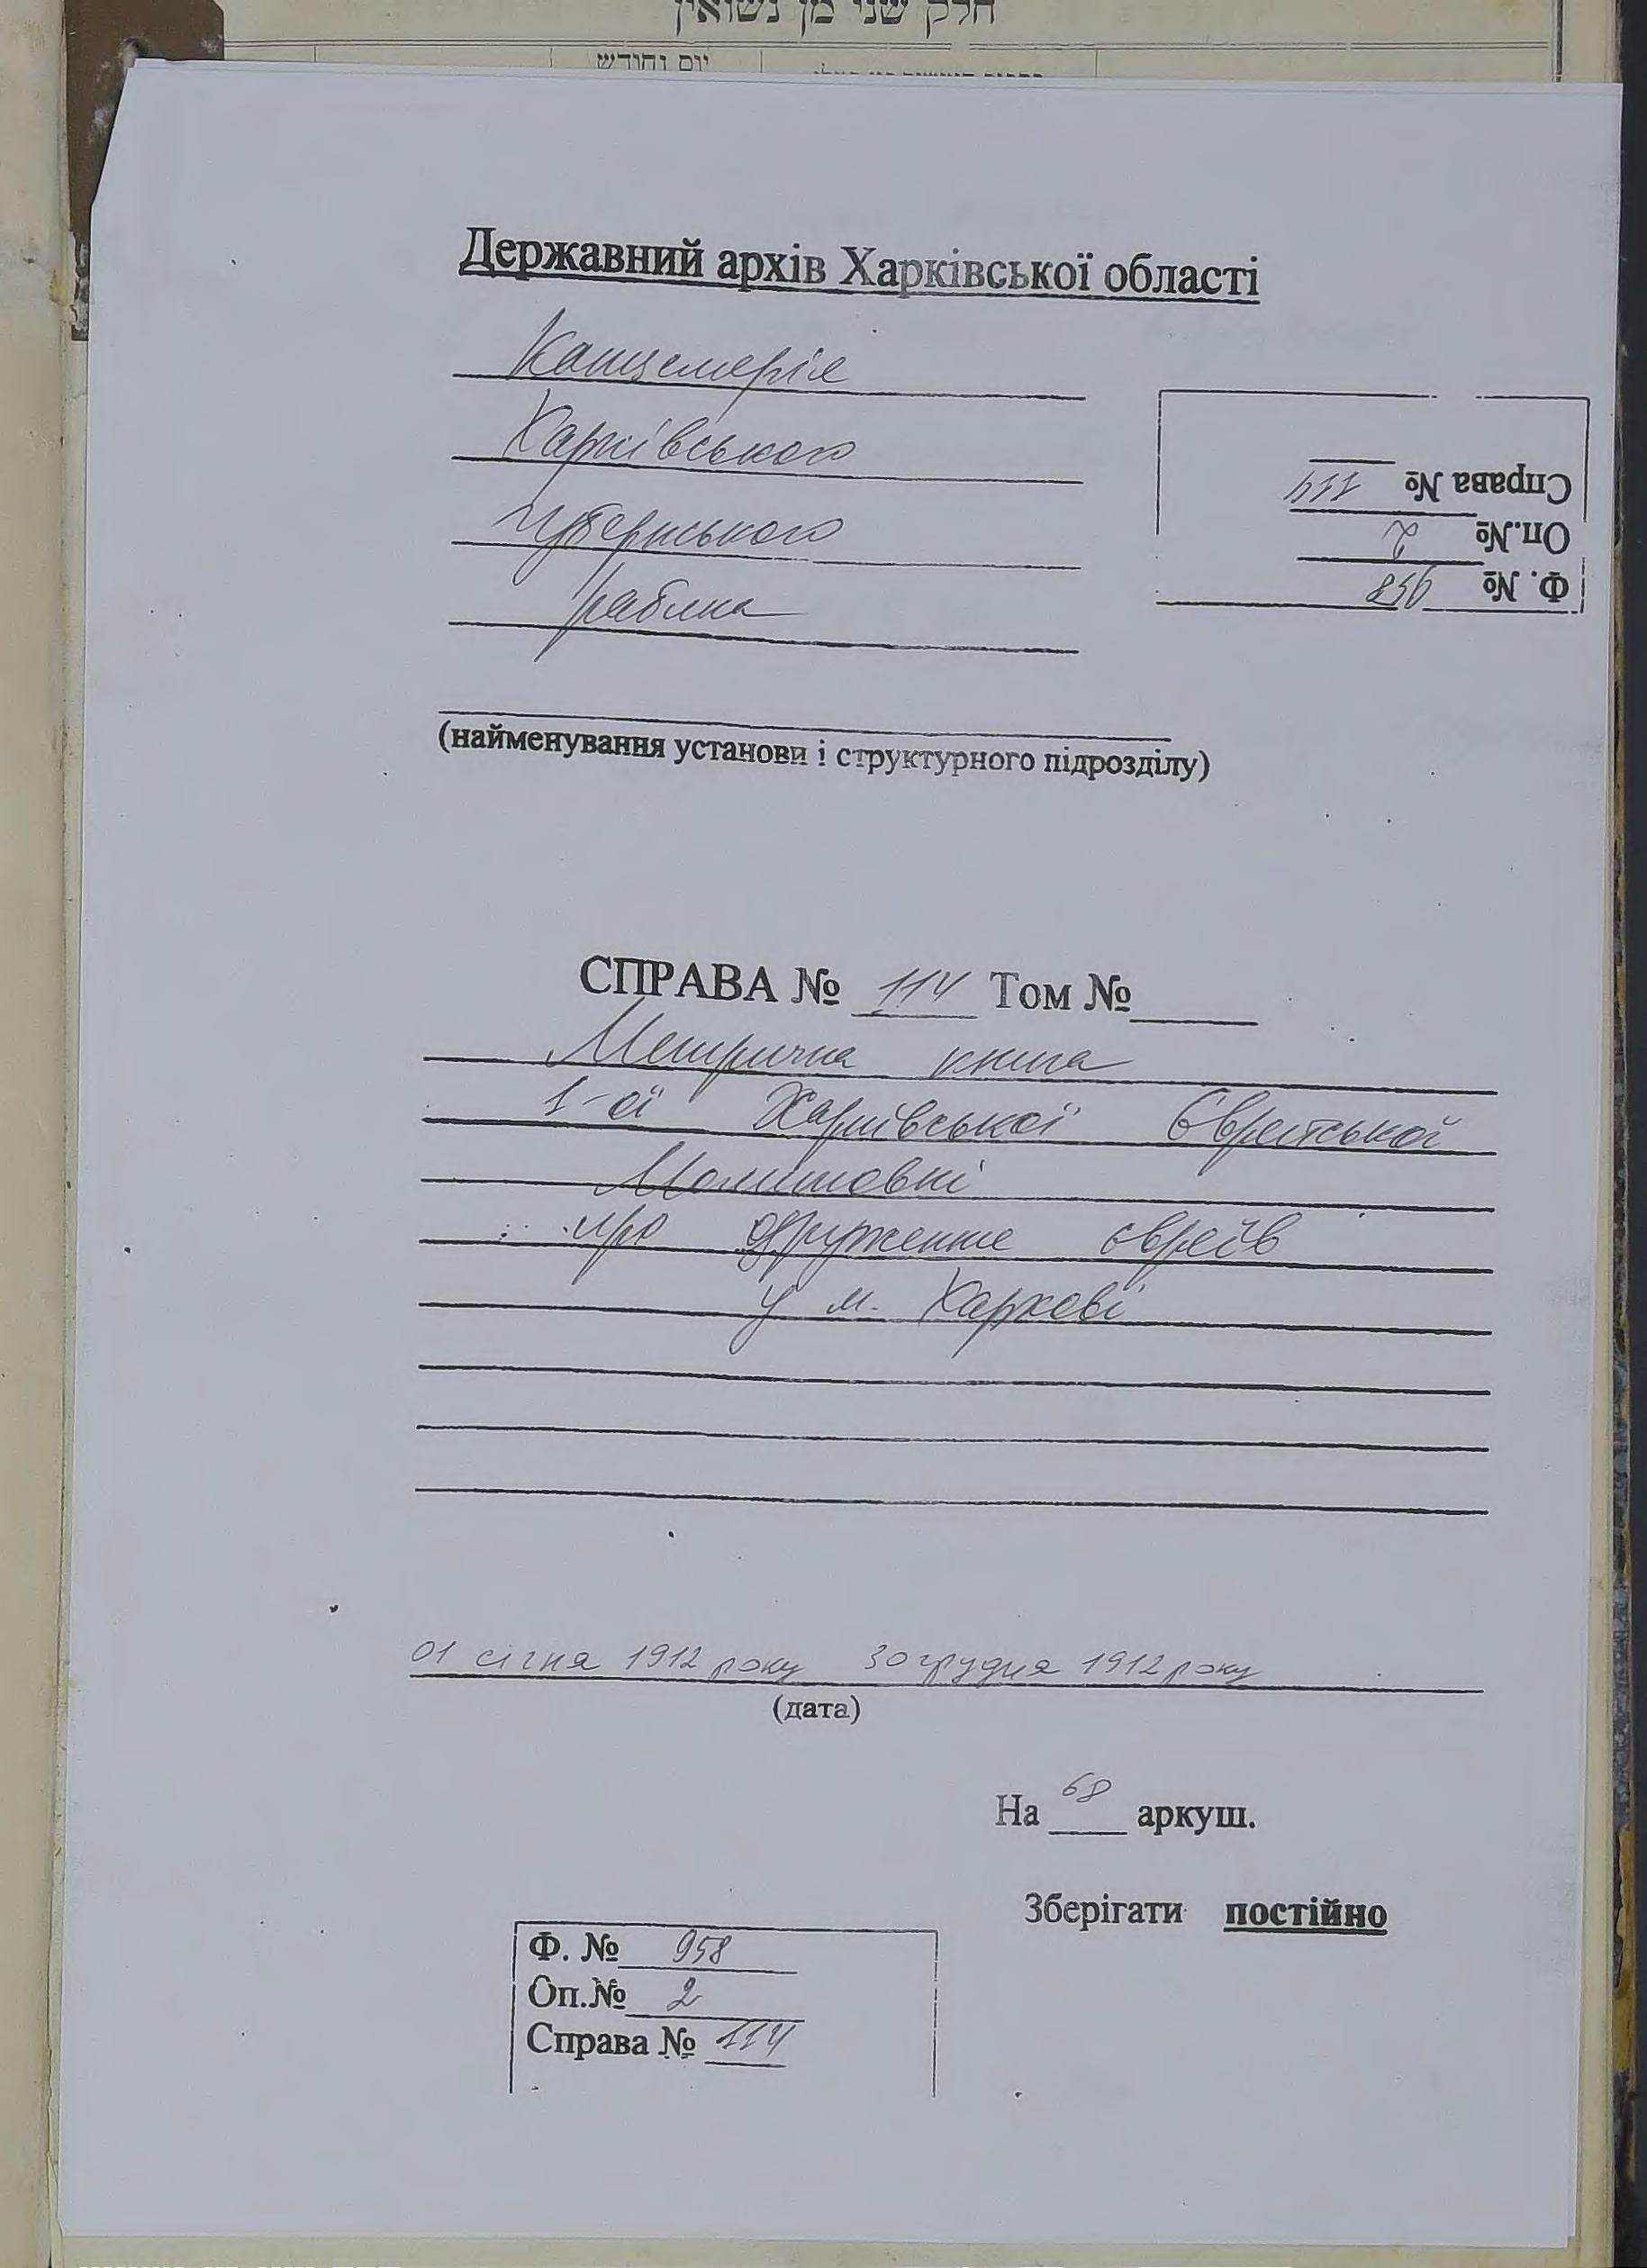 חלק שני מן נשואין
יום וחודש
Державний архів Харківської області
Канцелярія
Харківського
губернського
рабина
Справа № 114
Оп.№ 2
Ф. № 958
(найменування установи і структурного підрозділу)
СПРАВА № 114 Том №
Метрична книга
1-ої Харківської Єврейської
Молитовні
про одруження євреїв
у м. Харкові
01 січня 1912 року 30 грудня 1912 року
(дата)
На 68 аркуш.
Зберігати постійно
Ф. № 958
Оп.№ 2
Справа № 114